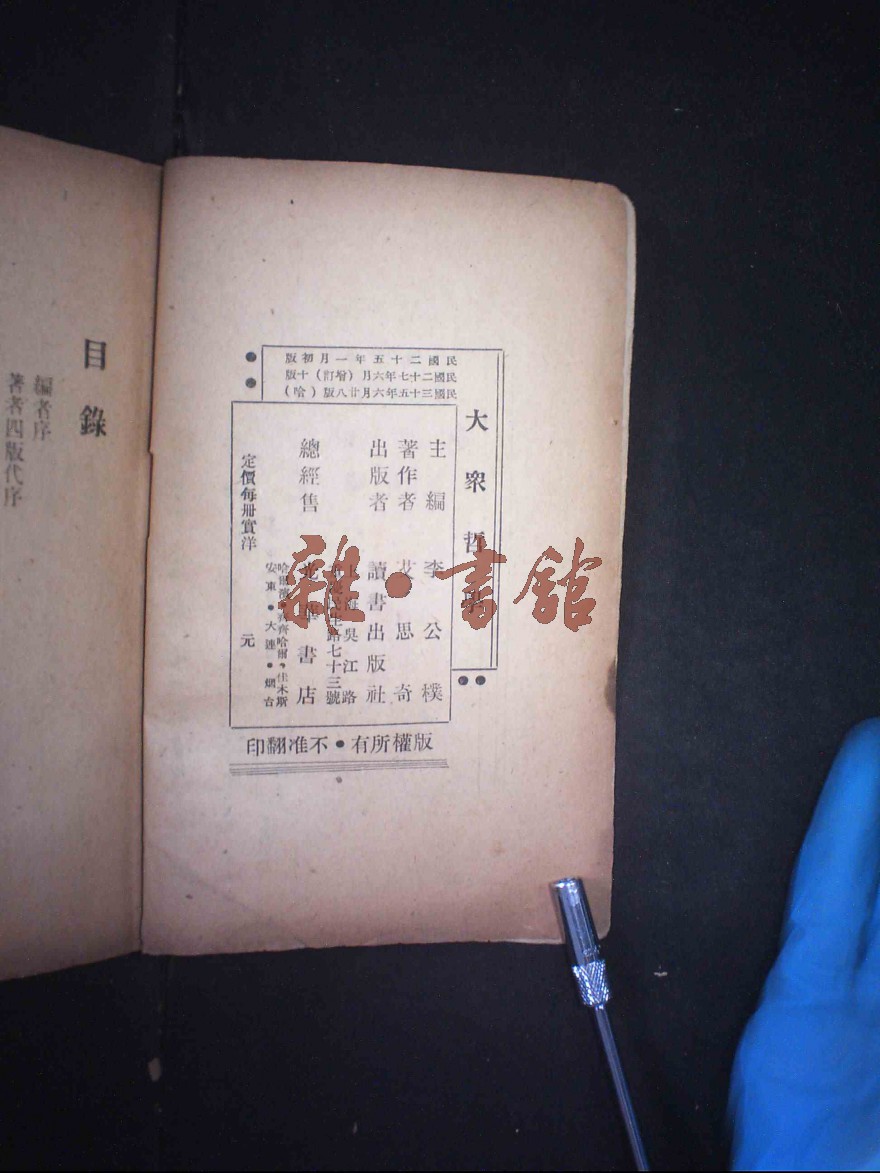 大衆哲學
民國二十五年一月初版
民國二十七年六月（增訂）十版
民國三十五年六月廿八版（哈）
主編 李公樸
著作者 艾思奇
出版者 讀書出版社
上海吳江路
重慶民生路七十三號
總經售 光華書店
哈爾濱・齊齊哈爾・佳木斯
安東・大連・烟台
定價每冊實洋 元
版權所有・不准翻印
目錄
編者序
著者四版代序
雜・書舘